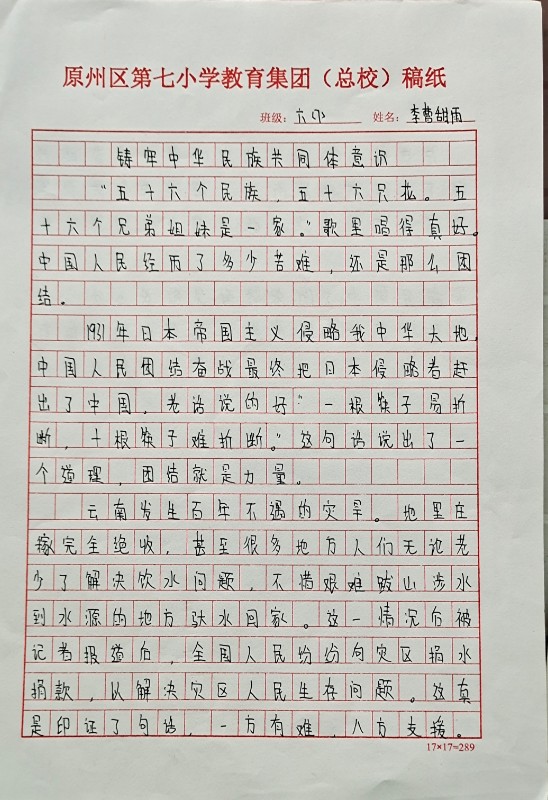 原州区第七小学教育集团（总校）稿纸
班级：六(7) 姓名：李曹甜雨
铸牢中华民族共同体意识
“五十六个民族，五十六只花。五
十六个兄弟姐妹是一家。”歌里唱得真好。
中国人民经历了多少苦难，还是那么团
结。
1931年日本帝国主义侵略我中华大地，
中国人民团结奋战最终把日本侵略者赶
出了中国，老话说的好“一根筷子易折
断，十根筷子难折断。”这句话说出了一
个道理，团结就是力量。
云南发生百年不遇的灾旱。地里庄
稼完全绝收，甚至很多地方人们无论老
少了解决饮水问题，不惜艰难跋山涉水
到水源的地方驮水回家。这一情况后被
记者报道后，全国人民纷纷向灾区捐水
捐款，从解决灾区人民生存问题。这真
是印证了句话，一方有难，八方支援。
17×17=289